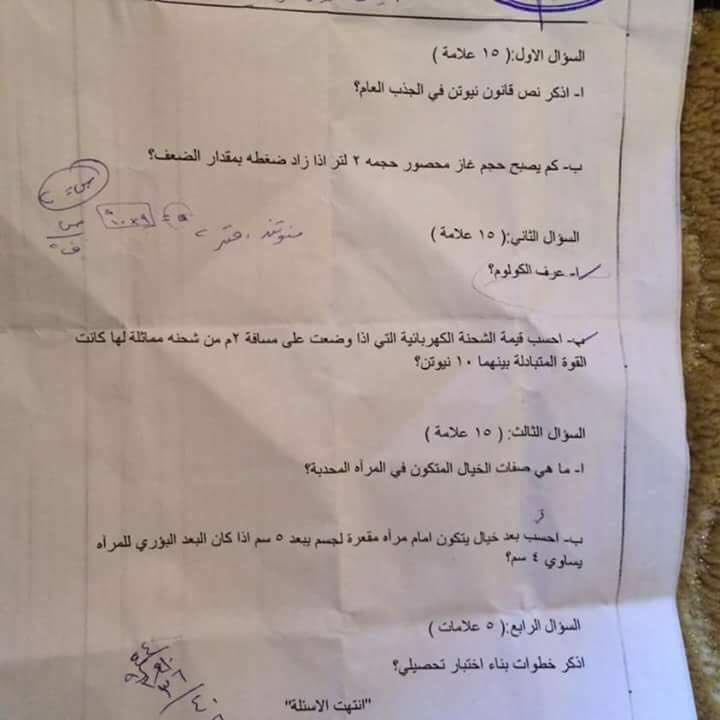 السؤال الاول:( ١٥ علامة )
ا- اذكر نص قانون نيوتن في الجذب العام؟
ب- كم يصبح حجم غاز محصور حجمه ٢ لتر اذا زاد ضغطه بمقدار الضعف؟
السؤال الثاني:( ١٥ علامة )
ا- عرف الكولوم؟
ب- احسب قيمة الشحنة الكهربائية التي اذا وضعت على مسافة ٢م من شحنه مماثلة لها كانت
القوة المتبادلة بينهما ١٠ نيوتن؟
السؤال الثالث: ( ١٥ علامة )
ا- ما هي صفات الخيال المتكون في المرأه المحدبة؟
ب- احسب بعد خيال يتكون امام مرأه مقعرة لجسم يبعد ٥ سم اذا كان البعد البؤري للمرأه
يساوي ٤ سم؟
السؤال الرابع:( ٥ علامات )
اذكر خطوات بناء اختبار تحصيلي؟
"انتهت الاسئلة"